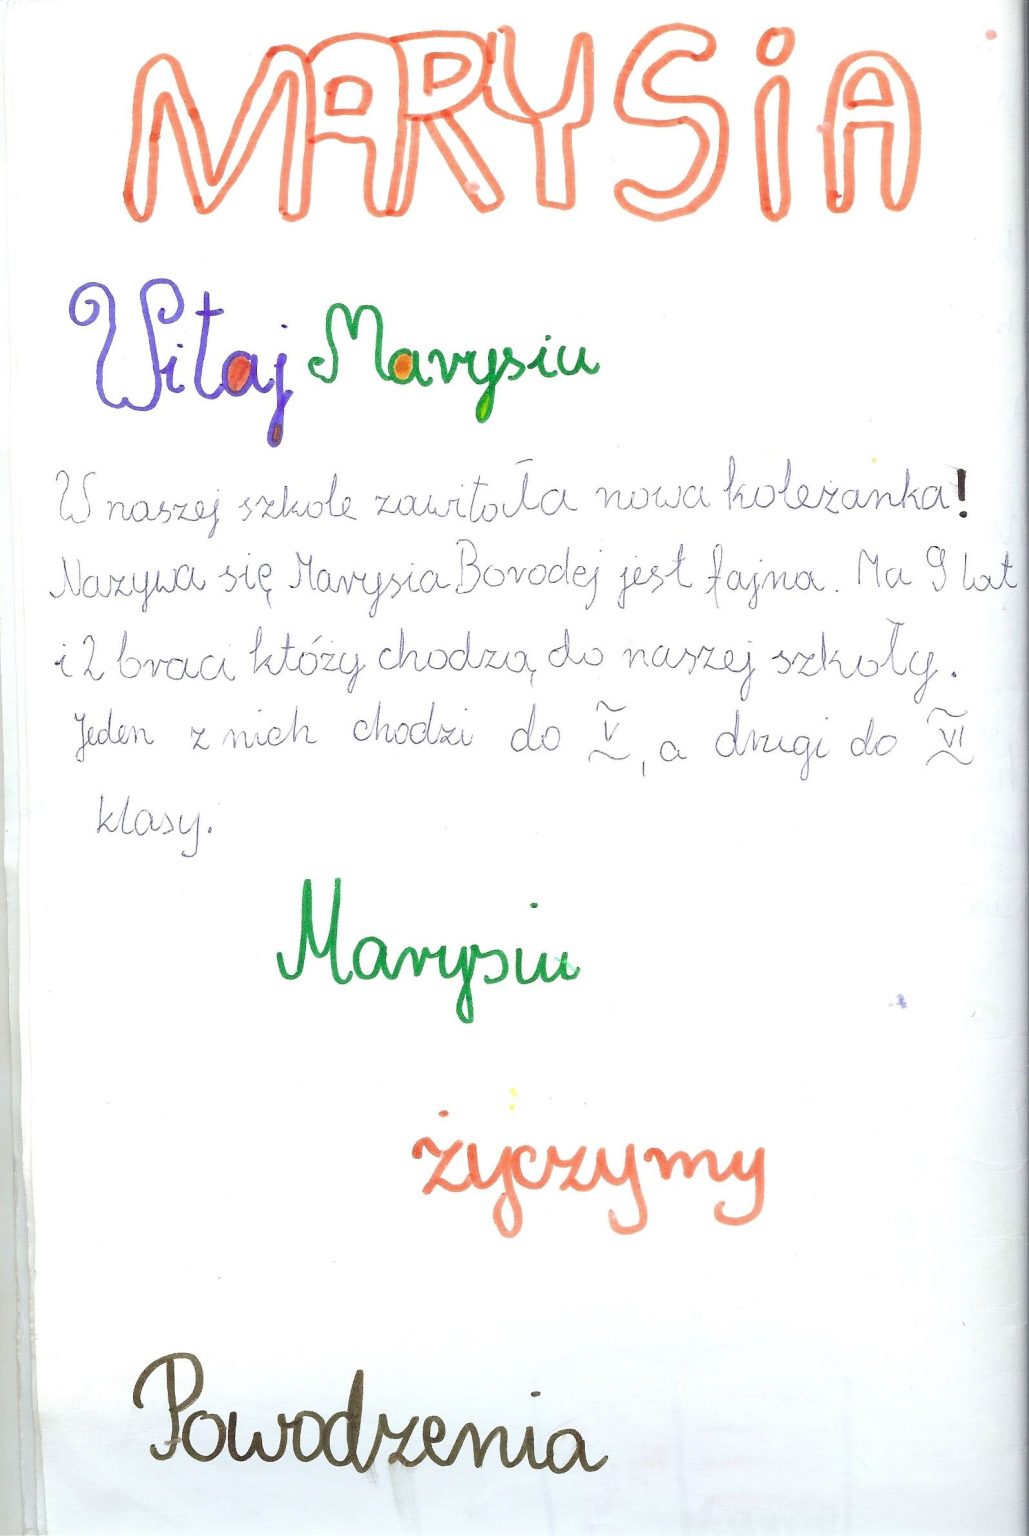 MARYSiA
Witaj Marysiu
W naszej szkole zawitała nowa koleżanka!
Nazywa się Marysia Borodej jest fajna. Ma 9 lat
i 2 braci któży chodzą do naszej szkoły.
Jeden z nich chodzi do V, a drugi do VI
klasy.
Marysiu
życzymy
Powodzenia